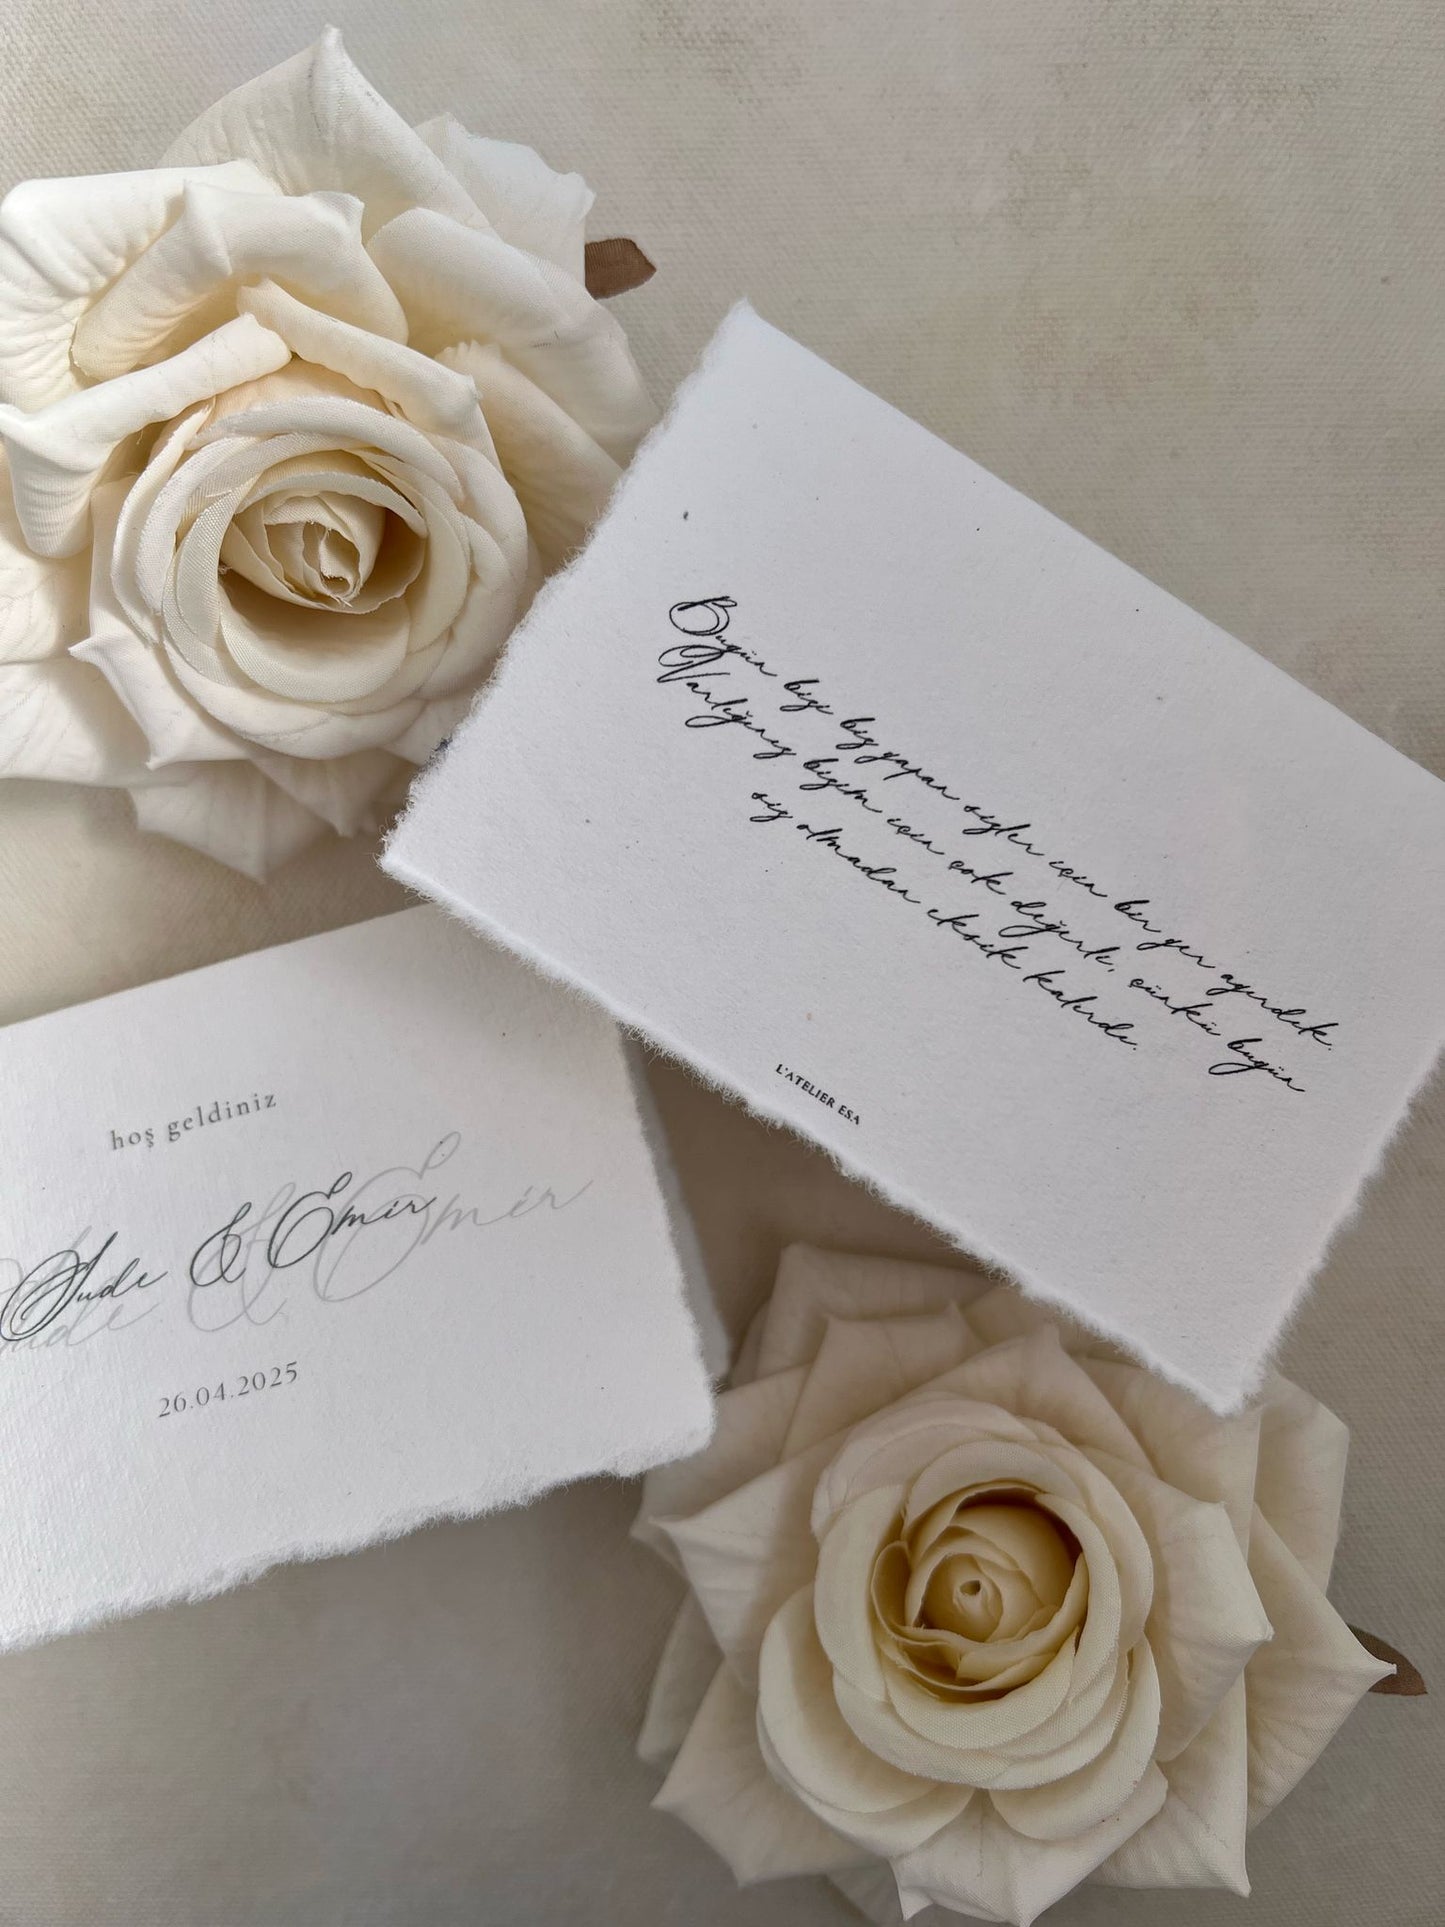 Bugün bizi biz yapan sizler için bir yer ayırdık.
Varlığınız bizim için çok değerli, çünkü bugün
siz olmadan eksik kalırdı.
L'ATELIER ESA
hoş geldiniz
Sude & Emir
Sude & Emir
26.04.2025